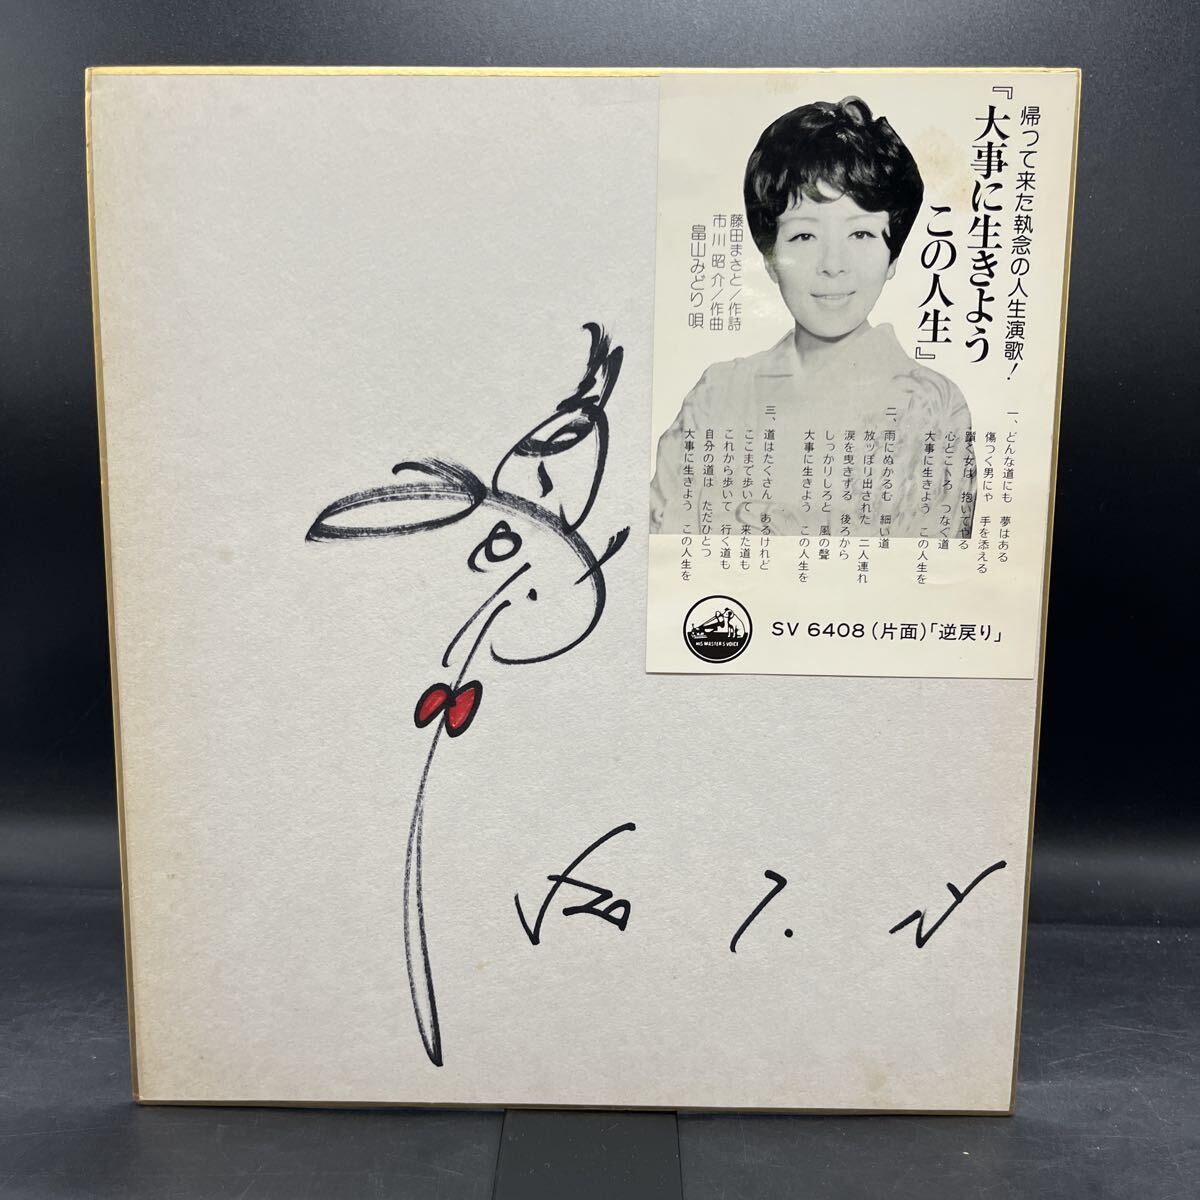 帰って来た執念の人生演歌!
『大事に生きよう
この人生』
藤田まさと/作詩
市川昭介/作曲
畠山みどり 唄
一、どんな道にも 夢はある
傷つく男にゃ 手を添える
躓く女は 抱いてやる
心とこゝろ つなぐ道
大事に生きよう この人生を
二、雨にぬかるむ 細い道
放ッぽり出された 二人連れ
涙を曳きずる 後ろから
しっかりしろと 風の聲
大事に生きよう この人生を
三、道はたくさん あるけれど
ここまで歩いて 来た道も
これから歩いて 行く道も
自分の道は ただひとつ
大事に生きよう この人生を
HIS MASTER'S VOICE
SV 6408(片面)「逆戻り」